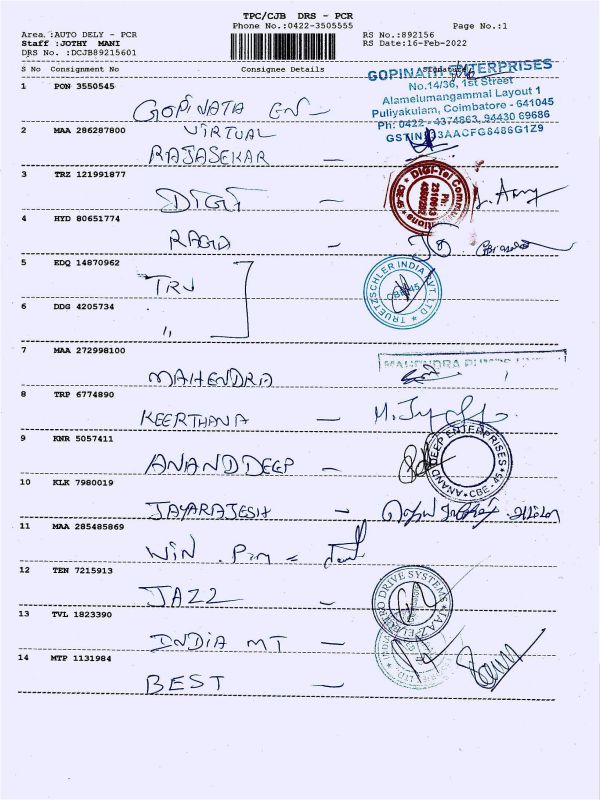 TPC/CJB DRS - PCR
Phone No.:0422-3505555
Page No.:1
Area :AUTO DELY - PCR
RS No.:892156
Staff :JOTHY MANI
RS Date:16-Feb-2022
DRS No. :DCJB89215601
S No Consignment No Consignee Details Signature
GOPINATH ENTERPRISES
No.14/36, 1st Street
Alamelumangammal Layout 1
Puliyakulam, Coimbatore - 641045
Ph: 0422 - 4374863, 94430 69686
1 PON 3550545
GOPINATH EN -
2 MAA 286287800
VIRTUAL
RAJASEKAR -
3 TRZ 121991877
DIGI -
DIGI-Tel Communications
CBE-45
4 HYD 80651774
RAGA -
5 EDQ 14870962
TRU
TRUETZSCHLER INDIA PVT LTD
CBE-45
6 DDG 4205734
"
7 MAA 272998100
MAHENDRA
MAHENDRA PUMPS
8 TRP 6774890
KEERTHANA -
9 KNR 5057411
ANANDDEEP -
ANANDDEEP ENTERPRISES
CBE - 45
10 KLK 7980019
JAYARAJESH -
11 MAA 285485869
WIN
12 TEN 7215913
JAZZ -
DRIVE SYSTEMS
13 TVL 1823390
INDIA MT -
14 MTP 1131984
BEST -